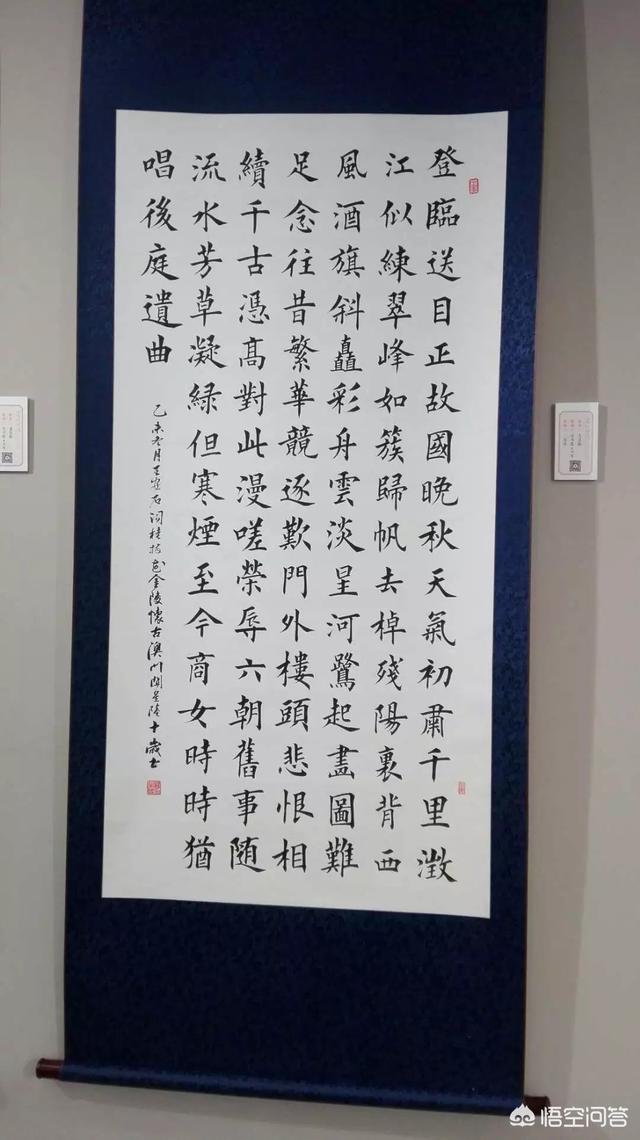 登臨送目正故國晚秋天氣初肅千里澂
江似練翠峰如簇歸帆去棹殘陽裏背西
風酒旗斜矗彩舟雲淡星河鷺起畫圖難
足念往昔繁華競逐歎門外樓頭悲恨相
續千古憑髙對此漫嗟榮辱六朝舊事随
流水芳草凝綠但寒煙至今商女時時猶
唱後庭遺曲
乙未冬月王安石詞桂枝香金陵懷古十歲書
悟空问答